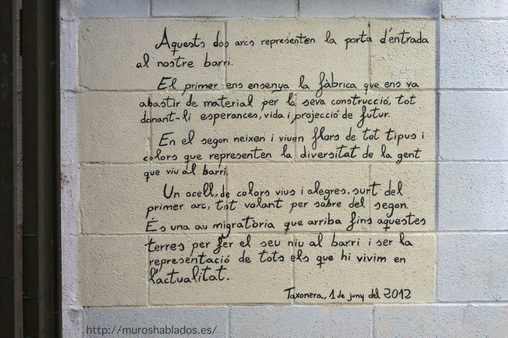 Aquests dos arcs representen la porta d'entrada
al nostre barri.
El primer ens ensenya la fàbrica que ens va
abastir de material per la seva construcció, tot
donant-li esperances, vida i projecció de futur.
En el segon neixen i viuen flors de tot tipus i
colors que representen la diversitat de la gent
que viu al barri.
Un ocell, de colors vius i alegres, surt del
primer arc, tot volant per sobre del segon.
És una au migratòria que arriba fins aquestes
terres per fer el seu niu al barri i ser la
representació de tots els que hi vivim en
l'actualitat.
Taxonera, 1 de juny del 2012
http://muroshablados.es/